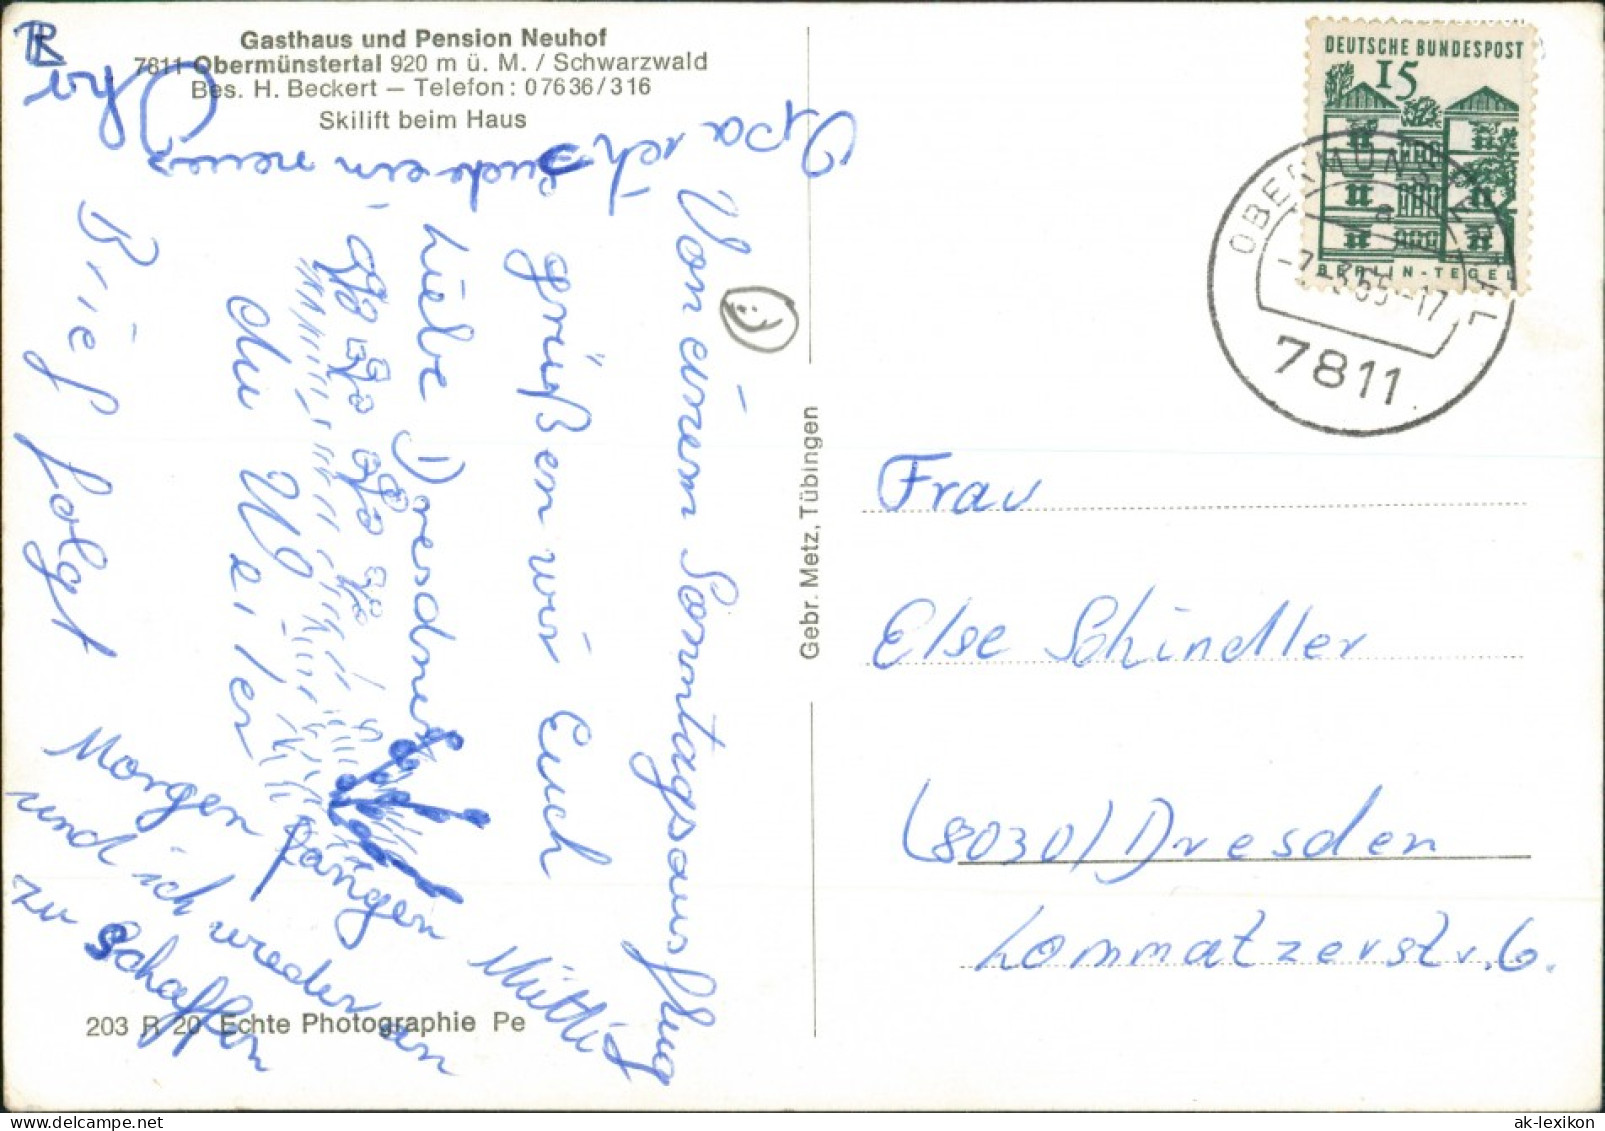 Gasthaus und Pension Neuhof
7811 Obermünstertal 920 m ü. M. / Schwarzwald
Bes. H. Beckert – Telefon: 07636/316
Skilift beim Haus
Liebe Dresdner
grüßen wir Euch
Von einem Sonntagsausflug
Opa ich suche ein neues
Ohr
Brief folgt
Morgen fangen Mutti
und ich wieder an
zu Schaffen
203 R 20 Echte Photographie Pe
Gebr. Metz, Tübingen
DEUTSCHE BUNDESPOST
15
BERLIN-TEGEL
OBERMÜNSTERTAL
a
-7.-3.65-17
7811
Frau
Else Schindler
(8030) Dresden
Lommatzerstr. 6.
ak-lexikon